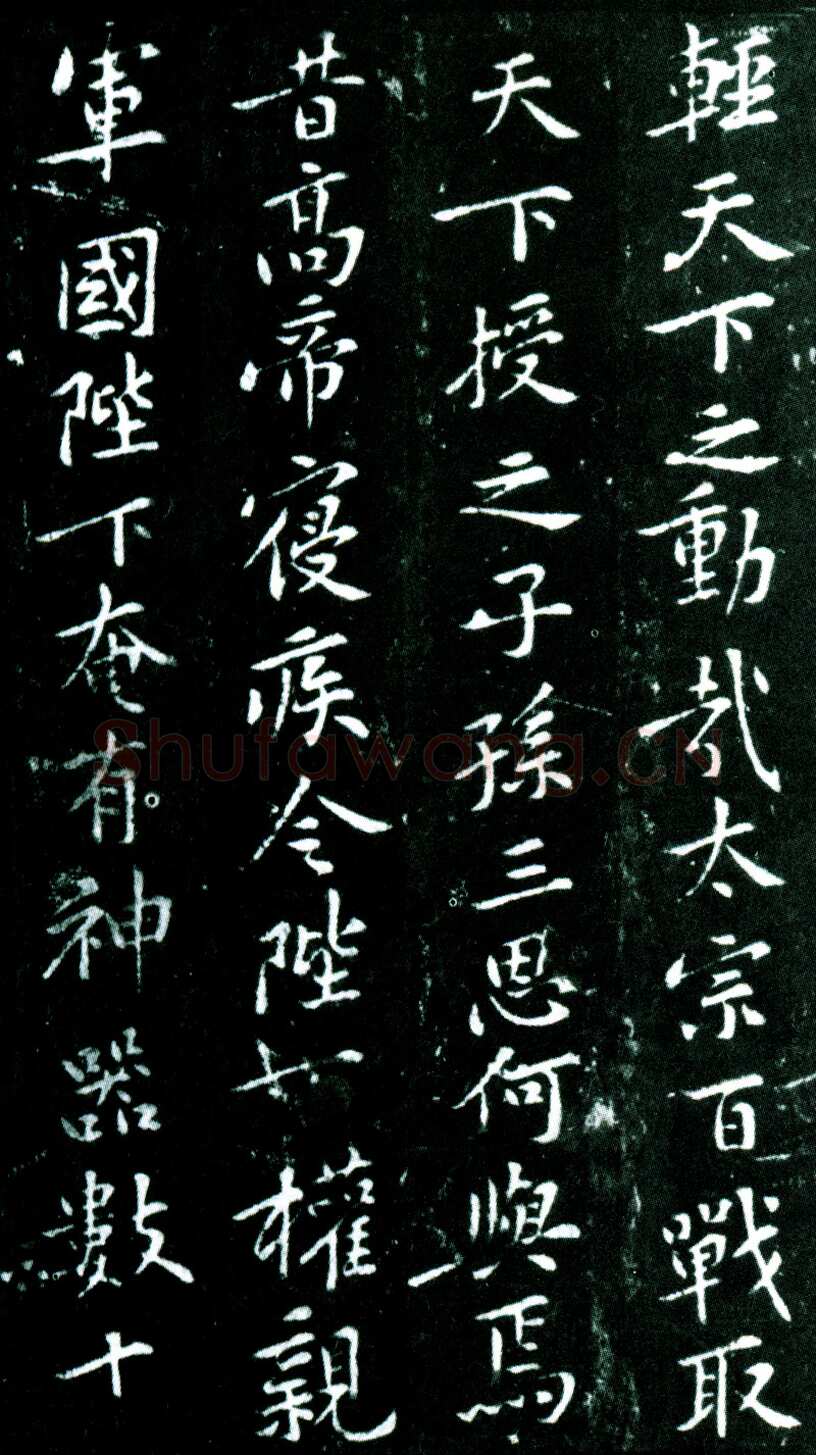 輕天下之動哉太宗百戰取
天下授之子孫三思何與焉
昔高帝寑疾令陛下權親
軍國陛下奄有神器數十
Shufawang.CN